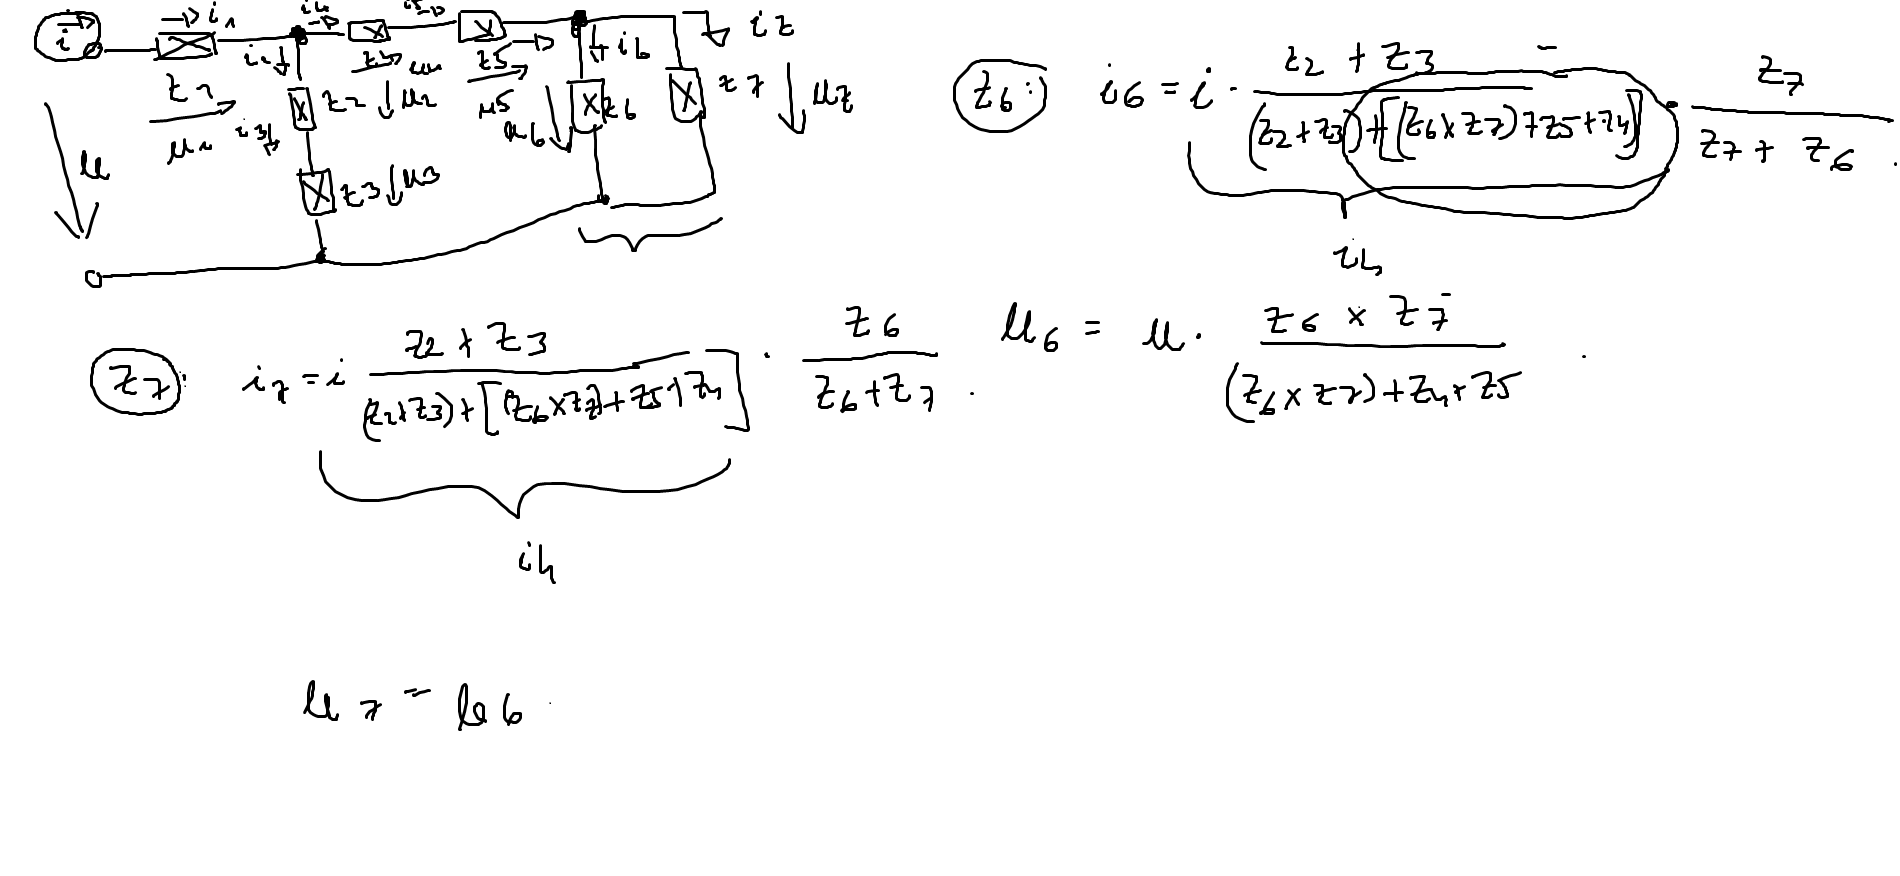 i i1 i4 i5 i7
z1 i2 z4 u4 z5 i6
u z2 u2 u5 z6 z7 u7
u1 i3 u6
z3 u3
z6: i6 = i · (z2 + z3) / ((z2+z3)+[(z6xz7)+z5+z4]) · z7 / (z7 + z6)
i4
z7: i7 = i (z2 + z3) / ((z2+z3)+[(z6xz7)+z5+z4]) · z6 / (z6+z7)
i4
u6 = u · (z6 x z7) / ((z6xz7)+z4+z5)
u7 = u6